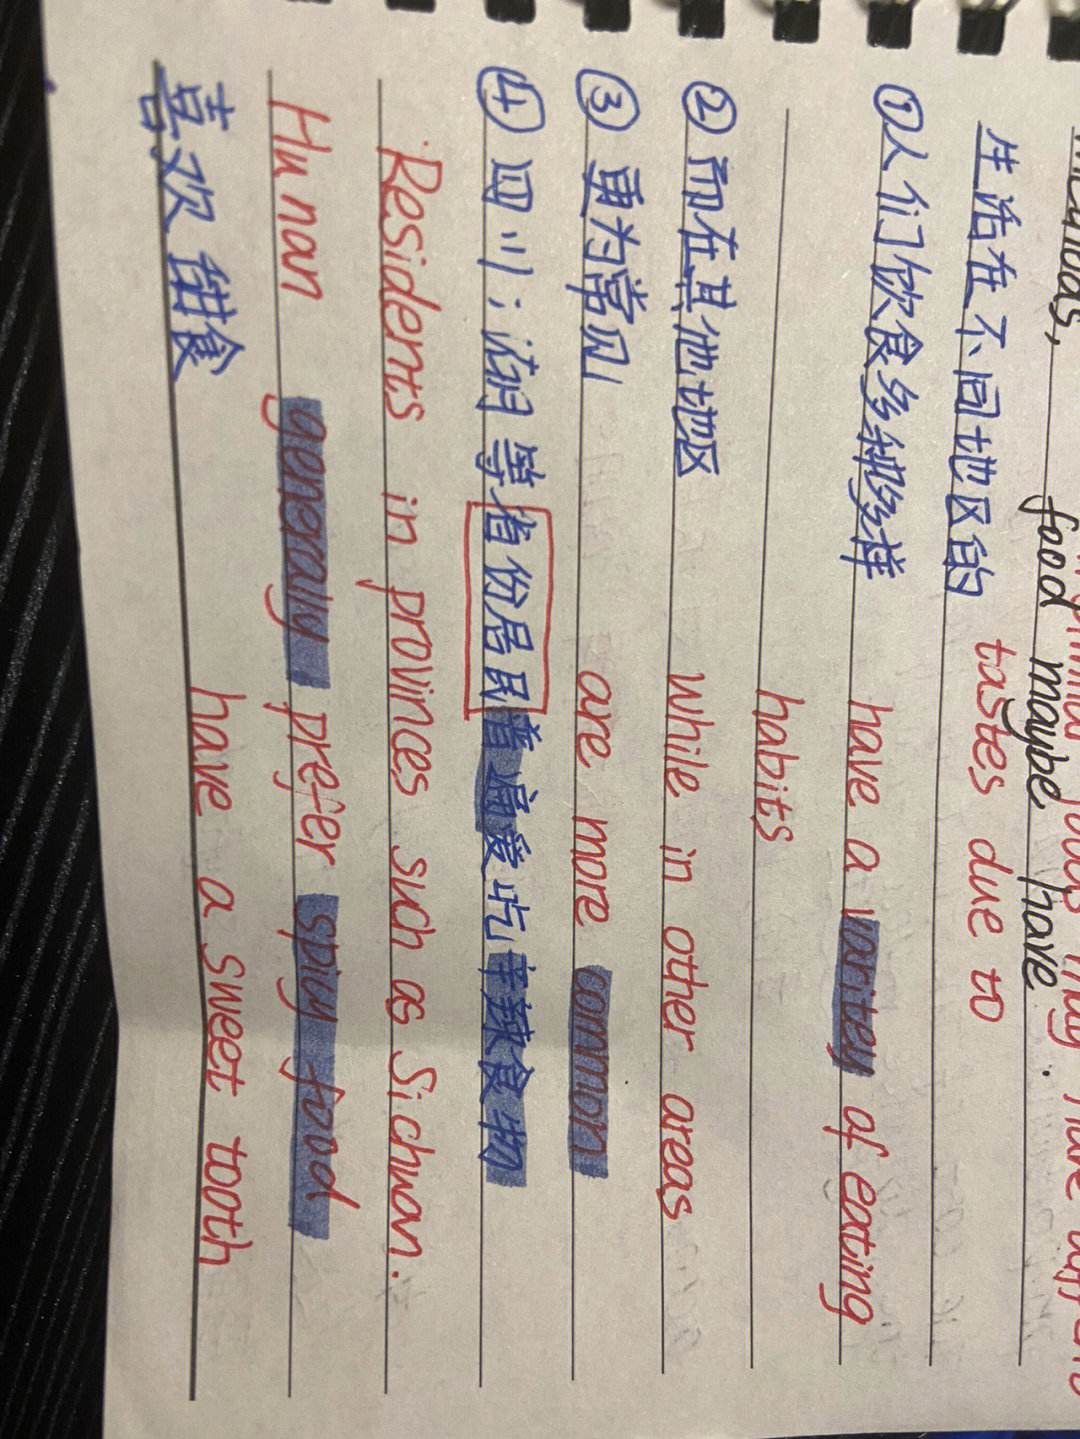 food maybe have
生活在不同地区的 tastes due to
①人们饮食多种多样 have a varitey of eating
habits
②而在其他地区 while in other areas
③更为常见 are more common
④四川；湖等省份居民普扁爱吃辛辣食物
Residents in provinces such as Sichuan.
Hunan generally prefer spicy food
喜欢甜食 have a sweet tooth